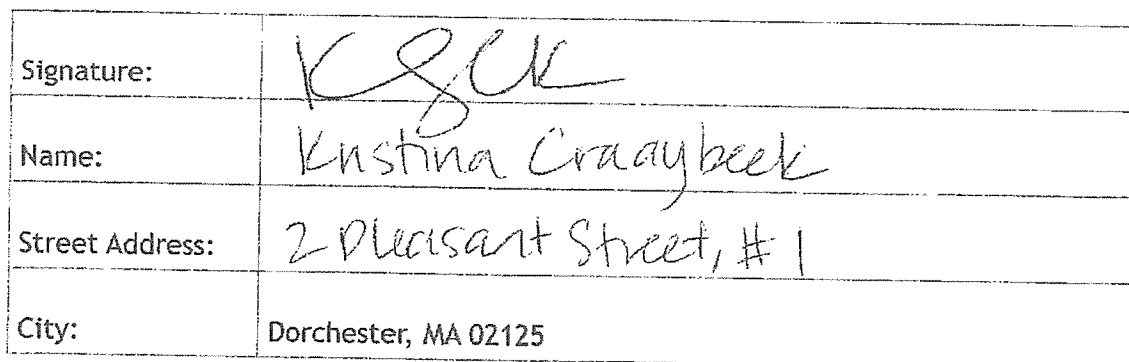 Signature:
Name: Kristina Craaybeek
Street Address: 2 Pleasant Street, #1
City: Dorchester, MA 02125